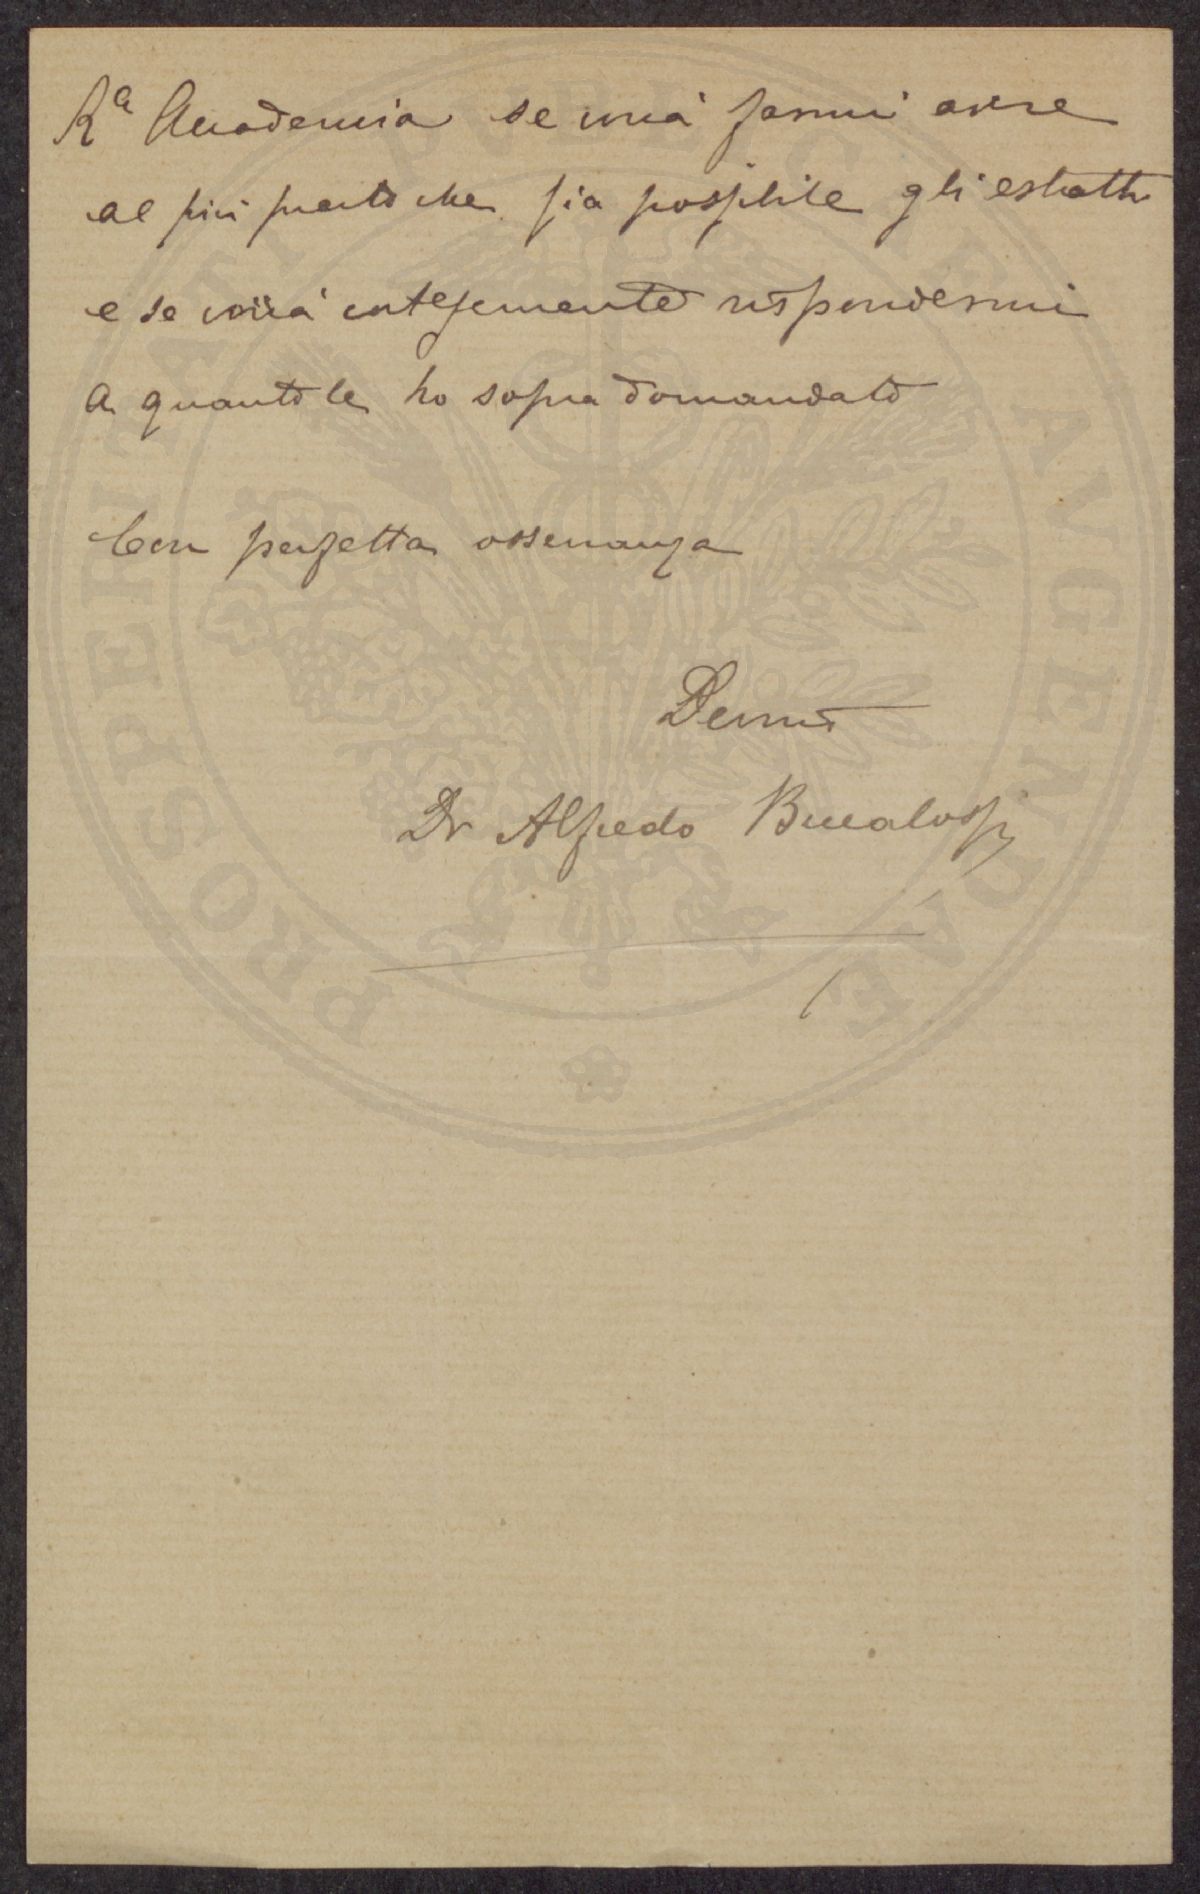 Rª Accademia se vorrà farmi avere
al più presto che sia possibile gli estratti
e se vorrà cortesemente rispondermi
a quanto le ho sopra domandato
Con perfetta osservanza
Devmo
Dr Alfredo Bucalossi
PROSPERITATI PUBLICAE AVGENDAE